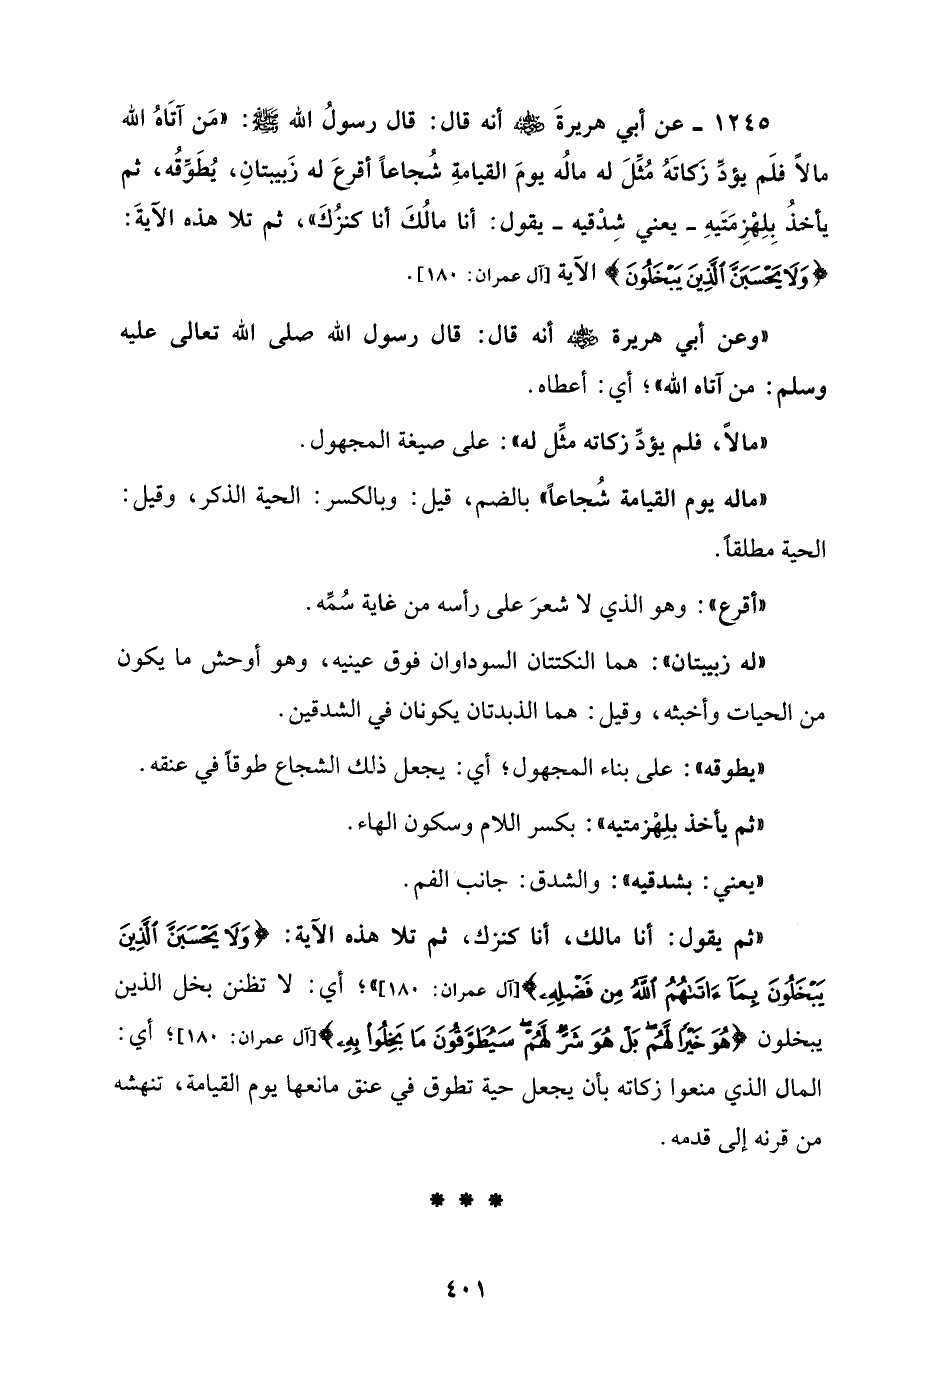 ١٢٤٥ ـ عن أبي هريرةَ رضي الله عنه أنه قال: قال رسولُ الله ﷺ: «مَن آتَاهُ الله
مالاً فلَم يؤدِّ زَكاتَهُ مُثِّلَ له مالُه يومَ القيامةِ شُجاعاً أقرعَ له زَبيبتانِ، يُطَوِّقُه، ثم
يأخذُ بِلِهْزِمَتَيهِ ـ يعني شِدْقيه ـ يقول: أنا مالُكَ أنا كنزُكَ»، ثم تلا هذه الآيةَ:
﴿وَلَا يَحْسَبَنَّ ٱلَّذِينَ يَبْخَلُونَ﴾ الآية [آل عمران: ١٨٠].
«وعن أبي هريرة رضي الله عنه أنه قال: قال رسول الله صلى الله تعالى عليه
وسلم: من آتاه الله»؛ أي: أعطاه.
«مالاً، فلم يؤدِّ زكاته مثِّل له»: على صيغة المجهول.
«ماله يوم القيامة شُجاعاً» بالضم، قيل: وبالكسر: الحية الذكر، وقيل:
الحية مطلقاً.
«أقرع»: وهو الذي لا شعرَ على رأسه من غاية سُمِّه.
«له زبيبتان»: هما النكتتان السوداوان فوق عينيه، وهو أوحش ما يكون
من الحيات وأخبثه، وقيل: هما الذبدتان يكونان في الشدقين.
«يطوقه»: على بناء المجهول؛ أي: يجعل ذلك الشجاع طوقاً في عنقه.
«ثم يأخذ بلِهْزمتيه»: بكسر اللام وسكون الهاء.
«يعني: بشدقيه»: والشدق: جانب الفم.
«ثم يقول: أنا مالك، أنا كنزك، ثم تلا هذه الآية: ﴿وَلَا يَحْسَبَنَّ ٱلَّذِينَ
يَبْخَلُونَ بِمَآ ءَاتَىٰهُمُ ٱللَّهُ مِن فَضْلِهِۦ﴾[آل عمران: ١٨٠]»؛ أي: لا تظنن بخل الذين
يبخلون ﴿هُوَ خَيْرًا لَّهُم ۖ بَلْ هُوَ شَرٌّ لَّهُمْ ۖ سَيُطَوَّقُونَ مَا بَخِلُوا۟ بِهِۦ﴾[آل عمران: ١٨٠]؛ أي:
المال الذي منعوا زكاته بأن يجعل حية تطوق في عنق مانعها يوم القيامة، تنهشه
من قرنه إلى قدمه.
* * *
٤٠١